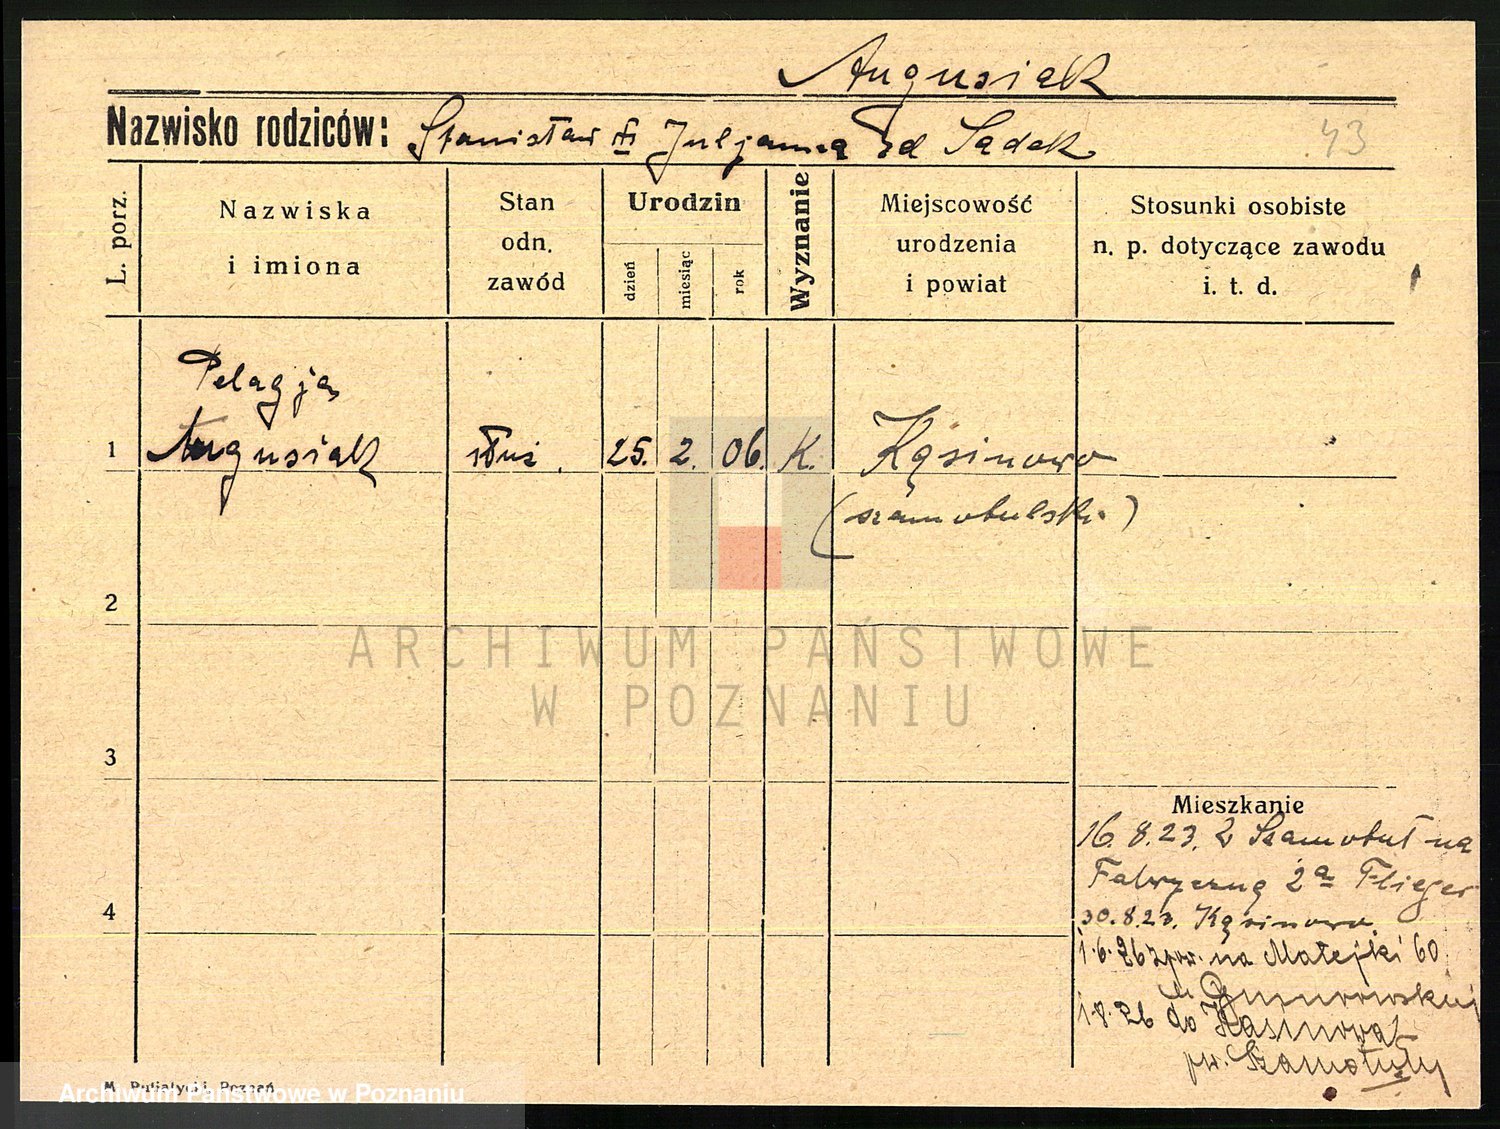 Augusiak
Nazwisko rodziców: Stanisław i Juljanna Sadek
43
L. porz.
Nazwiska
i imiona
Stan
odn.
zawód
Urodzin
dzień
miesiąc
rok
Wyznanie
Miejscowość
urodzenia
i powiat
Stosunki osobiste
n. p. dotyczące zawodu
i. t. d.
Pelagja
1 Augusiak służ. 25. 2. 06. K. Kąsinowo
(szamotulski)
2
ARCHIWUM PAŃSTWOWE
W POZNANIU
3
Mieszkanie
16. 8. 23. z Szamotuł na
Fabryczną 2a Flieger
4
30. 8. 23. Kąsinowo
1. 6. 26 na Matejki 60
1 8. 26 do Kasinowa
pw. Szamotuły
M. Putiatycki, Poznań
Archiwum Państwowe w Poznaniu